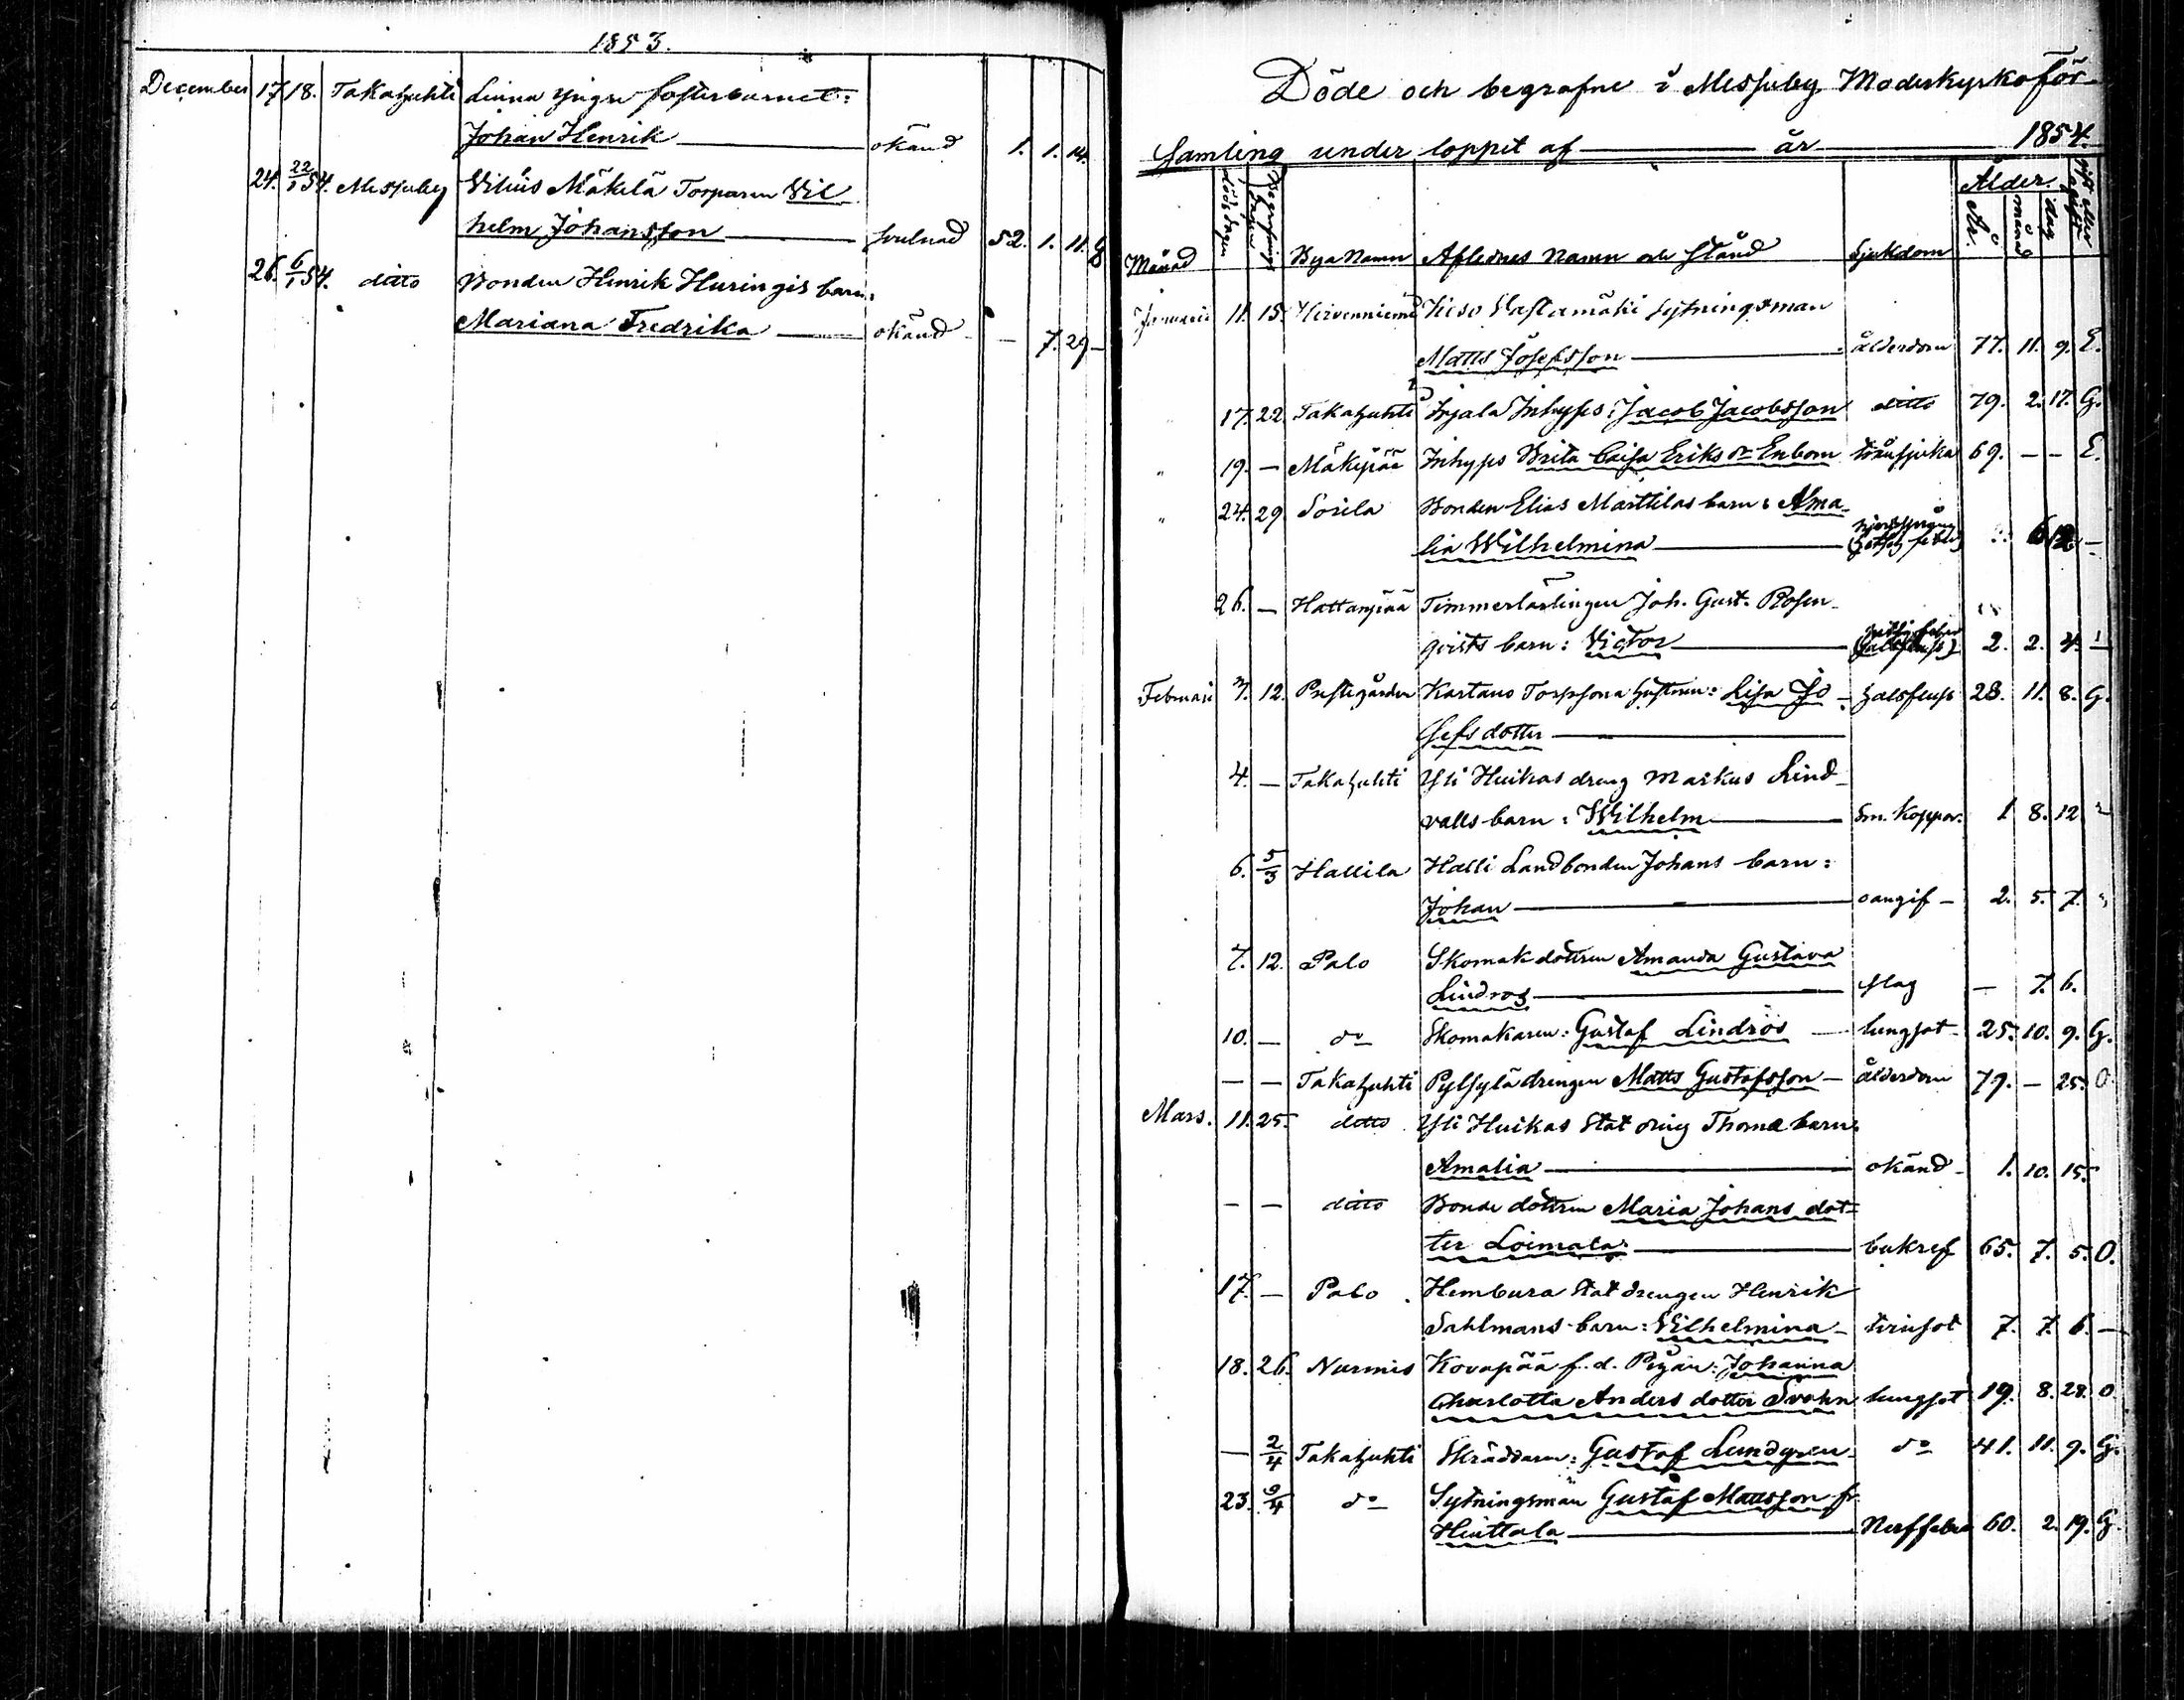 1853.
December 17. 18. Takahuhti Linna yngre fosterbarnet:
Johan Henrik okänd 1. 1. 14.
24. 22/1 54. Messuby Vilius Mäkelä Torparen Wil
helm Johansson svulnad 52. 1. 11. G
26. 6/1 54. ditto Bonden Henrik Huringis barn:
Mariana Fredrika okänd — 7. 29 —
Döde och begrafne i Messuby Moderkyrkoför-
samling under loppet af år 1854.
Månad Dödsdagen Begrafnings dagen Bya Namn Aflednes Namn och stånd Sjukdom Ålder. År. månad dag gift eller ogift
Januarii 11. 15. Hirvenniemi Heso Hastamäki sytningsman
Matts Josefsson ålderdom 77. 11. 9. E.
17. 22. Takahuhti Irjala Inhyses: Jacob Jacobsson ditto 79. 2. 17. G.
" 19. — Mäkipää Inhyses Brita Caisa Eriks dr Enbom tvinsjuka 69. — — E.
" 24. 29 Sorila Bonden Elias Marttilas barn: Ama-
lia Wilhelmina 6. 12 —
26. — Hattanpää Timmerlärlingen Joh. Gust. Rosen-
qvists barn: Victor (halsfluss) 2. 2. 4. —
Februari 3. 12. Prestgården Kartano Torpsona hustrun: Lisa Jo- halsfluss 28. 11. 8. G.
sefs dotter
4. — Takahuhti Yli Huikas dreng Markus Lind-
valls barn: Wilhelm Sm. Koppor. 1 8. 12 "
6. 5/3 Hallila Halli Landbonden Johans barn:
Johan oangif— 2. 5. 7. "
7. 12. Palo Skomak dottren Amanda Gustava
Lindros slag — 7. 6.
10. — do Skomakaren: Gustaf Lindros lungsot 25. 10. 9. G.
— — Takahuhti Pylsylä drengen Matts Gustafsson — ålderdom 79. — 25. O.
Mars. 11. 25. ditto Yli Huikas Stat dreng Thomæ barn:
Amalia okänd 1. 10. 15.
— — ditto Bonde dottren Maria Johans dot=
ter Loimala: bukref 65. 7. 5. O.
17. — Palo Hembura Stat drengen Henrik
Sahlmans barn: Wilhelmina — tvinsot 7. 7. 6. —
18. 26. Nurmis Kovapää f. d. Pigan: Johanna
Charlotta Anders dotter Svahn lungsot 19. 8. 28. O
— 2/4 Takahuhti Skräddaren: Gustaf Lundgren do 41. 11. 9. G.
23. 9/4 do Sytningsman Gustaf Mattsson fr
Huittala Nerffeber 60. 2. 19. G.